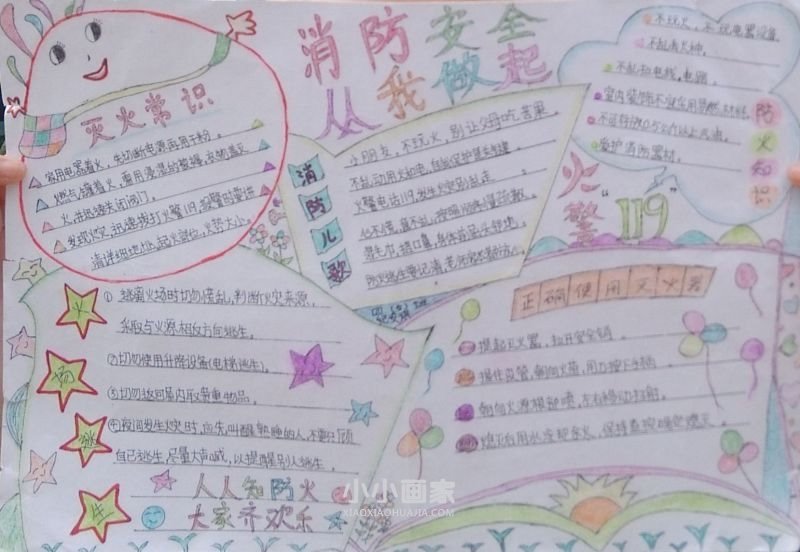 消防安全
从我做起
灭火常识
家用电器着火，先切断电源再用干粉。
燃气罐着火，要用浸湿的被褥，衣物盖灭
火并迅速关闭阀门。
发现火灾迅速拨打火警119，报警时要讲
清详细地址，起火部位，火势大小。
消防儿歌
小朋友，不玩火，别让父母吃苦果
不乱动用火和电，自我保护是关键
火警电话119，发生火灾别乱走
不玩火，不玩电器设备
不乱丢火种。
不乱拉电线，电路。
不可存放0.5公斤以上汽油。
爱护消防器材。
防火知识
火警"119"
火场逃生
①逃离火场时切勿慌乱，判断火灾来源，
采取与火源相反方向逃生。
②切勿使用升降设备(电梯逃生)。
③切勿返回屋内取贵重物品。
④夜间发生火灾时，应先叫醒熟睡的人，不要只顾
自己逃生，尽量大声喊，以提醒别人逃生。
人人知防火
大家齐欢乐
正确使用灭火器
提起灭火器，拉开安全销。
握住皮管，朝向火苗，用力按下手柄
朝向火源根部喷，左右移动扫射。
小小画家
XIAOXIAOHUAJIA.COM